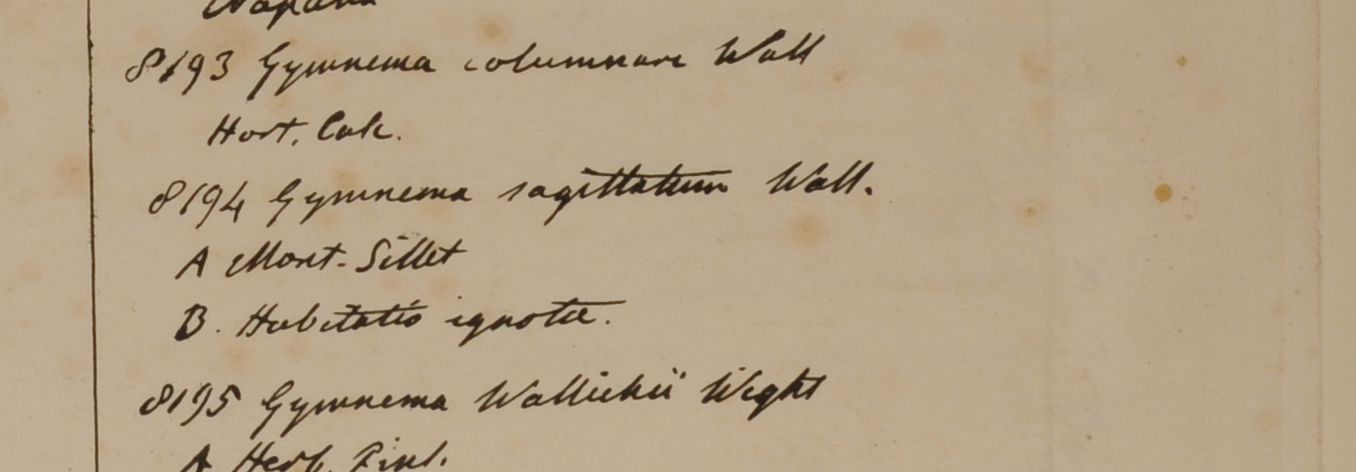 Napalia
8193 Gymnema columnare Wall
Hort. Calc.
8194 Gymnema sagittatum Wall.
A Mont. Sillet
B. Habitatio ignota.
8195 Gymnema Wallichii Wight
A Herb. Finl.